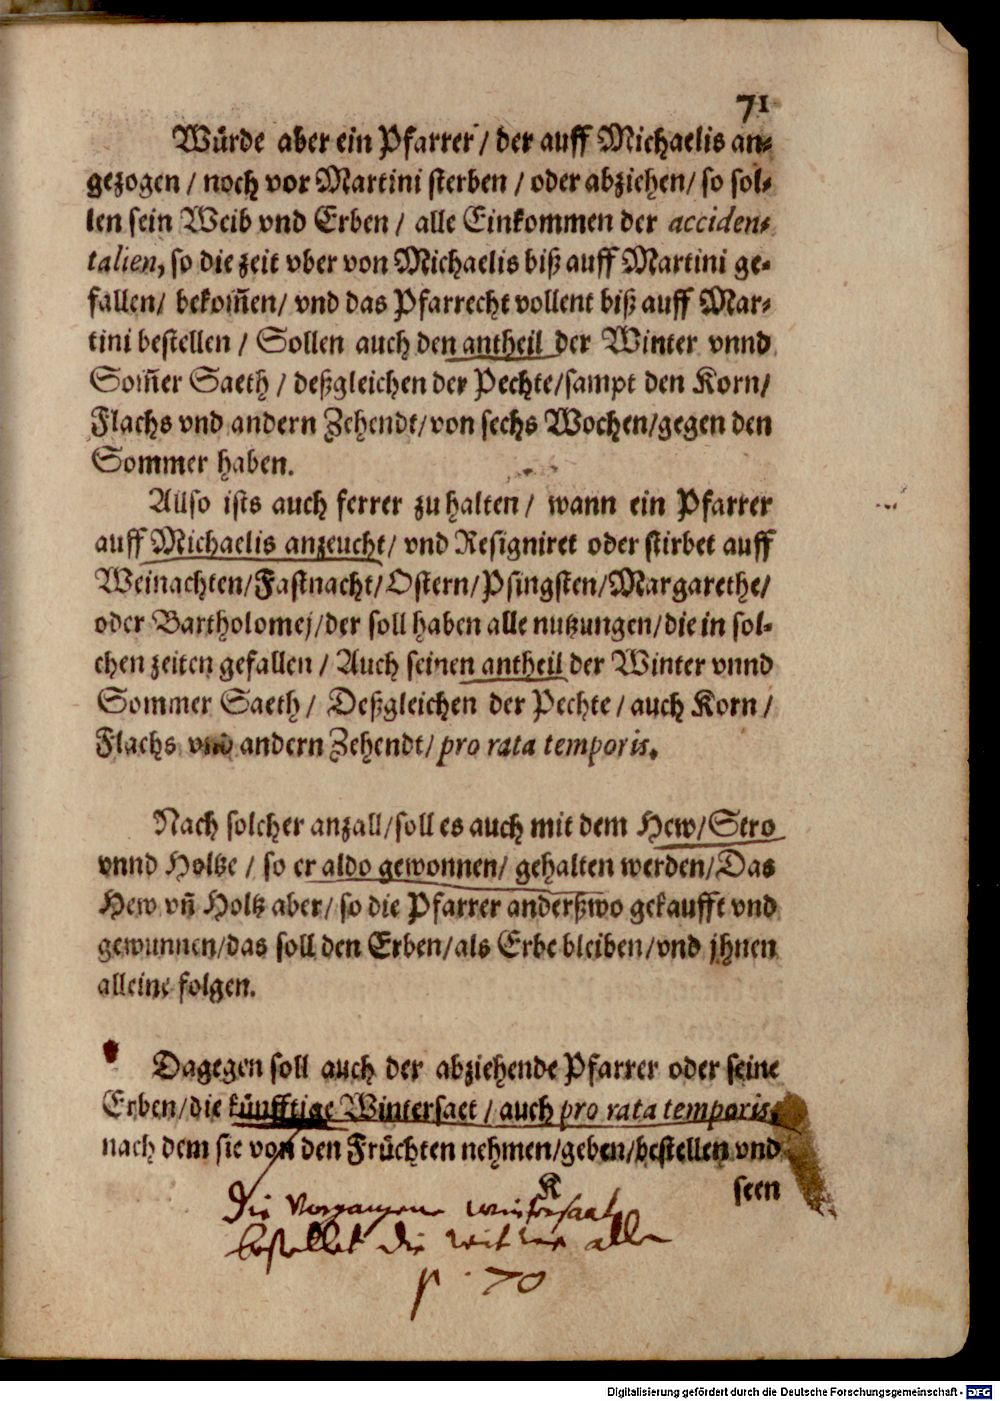 71
Würde aber ein Pfarrer / der auff Michaelis an-
gezogen / noch vor Martini sterben / oder abziehen / so sol-
len sein Weib vnd Erben / alle Einkommen der acciden-
talien, so die zeit vber von Michaelis biß auff Martini ge-
fallen / bekom̃en / vnd das Pfarrecht vollent biß auff Mar-
tini bestellen / Sollen auch den antheil der Winter vnnd
Som̃er Saeth / deßgleichen der Pechte / sampt den Korn /
Flachs vnd andern Zehendt / von sechs Wochen / gegen den
Sommer haben.
Allso ists auch ferrer zu halten / wann ein Pfarrer
auff Michaelis anzeucht / vnd Resigniret oder stirbet auff
Weinachten / Fastnacht / Ostern / Pfingsten / Margarethe /
oder Bartholomej / der soll haben alle nutzungen / die in sol-
chen zeiten gefallen / Auch seinen antheil der Winter vnnd
Sommer Saeth / Deßgleichen der Pechte / auch Korn /
Flachs vnd andern Zehendt / pro rata temporis.
Nach solcher anzall / soll es auch mit dem Hew / Stro
vnnd Holtze / so er aldo gewonnen / gehalten werden / Das
Hew vn̄ Holtz aber / so die Pfarrer anderßwo gekaufft vnd
gewunnen / das soll den Erben / als Erbe bleiben / vnd jhnen
alleine folgen.
Dagegen soll auch der abziehende Pfarrer oder seine
Erben / die künfftige Wintersaet / auch pro rata temporis,
nach dem sie von den Früchten nehmen / geben / bestellen vnd
seen
Die Vergangene wintersaat
bestellet die
p. 70
Digitalisierung gefördert durch die Deutsche Forschungsgemeinschaft - DFG